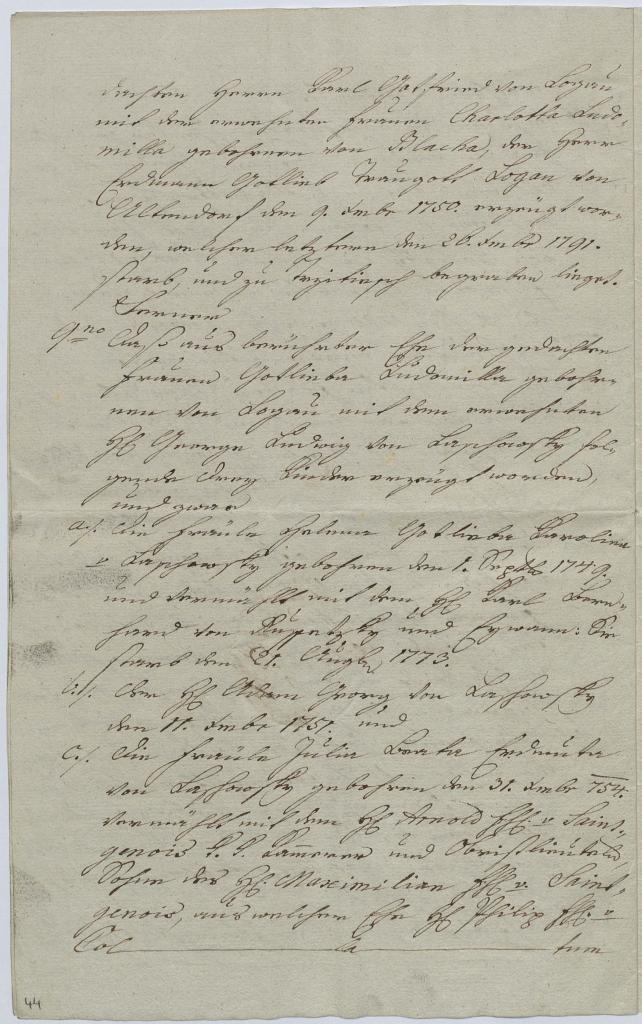 dachten Herrn Karl Gottfried von Logau,
mit der erwehnten Frauen Charlotta Ludo-
milla gebohrnen von Blacha, der Herr
Erdmann Gotlieb Traugott Logau von
Altendorf den 9. Xmbr 1750. erzeugt wor-
den, welcher letztere den 26. Xmbr 1791.
starb, und zu begraben lieget.
Ferner
9no Daß aus berührter Ehe der gedachten
Frauen Gotlieba Ludomilla gebohr-
nen von Logau mit dem erwehnten
H. George Ludwig von Laschowsky fol-
gende drey Kinder erzeugt worden,
und zwar
a./. die Fräule Helena Gotlieba Karolina
v Laschowsky gebohren den 1. Septb 1749,
und vermählt mit dem H. Karl Bern-
hard von und Sie
starb den 21. Augb 1773.
b./. der H. Adam Georg von Laschowsky
den 11. Xmbr 1751. und
c./. die Fräule Julia Beata Erdmuta
von Laschowsky gebohren den 31. Xmbr 754.
vermählt mit dem H. Arnold Fh. v Saint-
genois k. k. Kammerer und Obristlieutend,
Sohne des H. Maximilian Fh. v. Saint-
genois, aus welcher Ehe H. Philip Fh. v
Col la tum
44